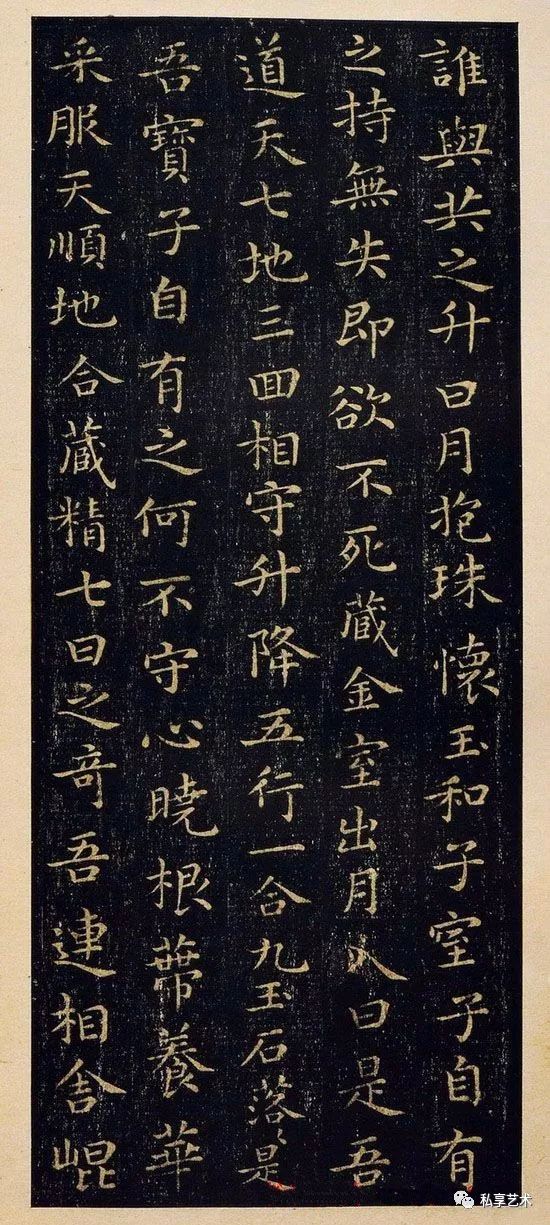 誰與共之升日月抱珠懷玉和子室子自有
之持無失即欲不死藏金室出月入日是吾
道天七地三囬相守升降五行一合九玉石落〻是
吾寶子自有之何不守心曉根蔕養華
采服天順地合藏精七日之奇吾連相舍崐
私享艺术